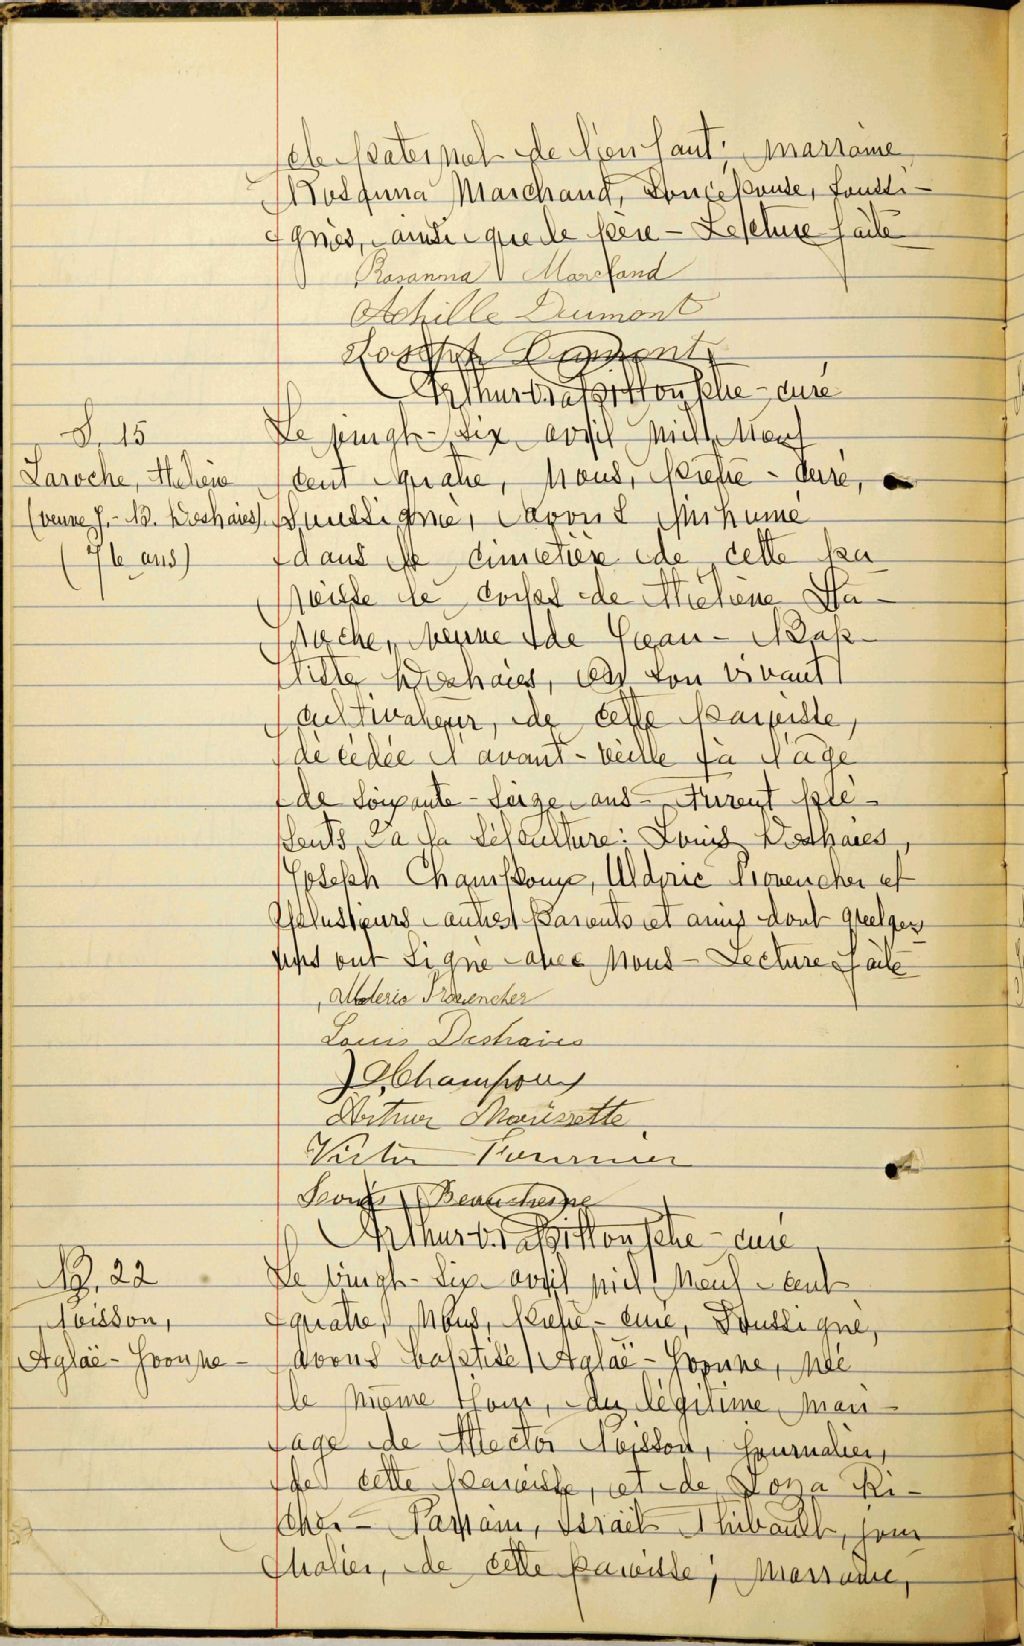 cle paternel de l'enfant; marraine
Rosanna Marchand, son épouse, soussi-
gnés, ainsi que le père - Lecture faite
Rosanna Marchand
Achille Dumont
Joseph Dumont
Arthur ptre-curé
S. 15
Laroche, Hélène
(veuve J.-B. Deshaies)
(76 ans)
Le vingt-six avril mil neuf
cent quatre, nous, prêtre-curé,
soussigné, avons inhumé
dans le cimetière de cette pa
roisse le corps de Hélène La-
roche, veuve de Jean-Bap-
tiste Deshaies, en son vivant
cultivateur, de cette paroisse,
décédée l'avant-veille à l'âge
de soixante-seize ans - Furent pré-
sents à la sépulture: Louis Deshaies,
Joseph Champoux, Uldoric Provencher et
plusieurs autres parents et amis dont quelques
uns ont signé avec nous - Lecture faite
Ulderic Provencher
Louis Deshaies
J O. Champoux
Arthur Morissette
Victor Fournier
Louis Beauchesne
Arthur ptre-curé
B. 22
Poisson,
Aglaë-Yvonne-
Le vingt-six avril mil neuf cent
quatre, nous, prêtre-curé, soussigné,
avons baptisé Aglaë-Yvonne, née
le même jour, du légitime mari-
age de Hector Poisson, journalier,
de cette paroisse, et de Roza Ri-
cher - Parrain, Israël Thibault, jour
nalier, de cette paroisse; marraine,